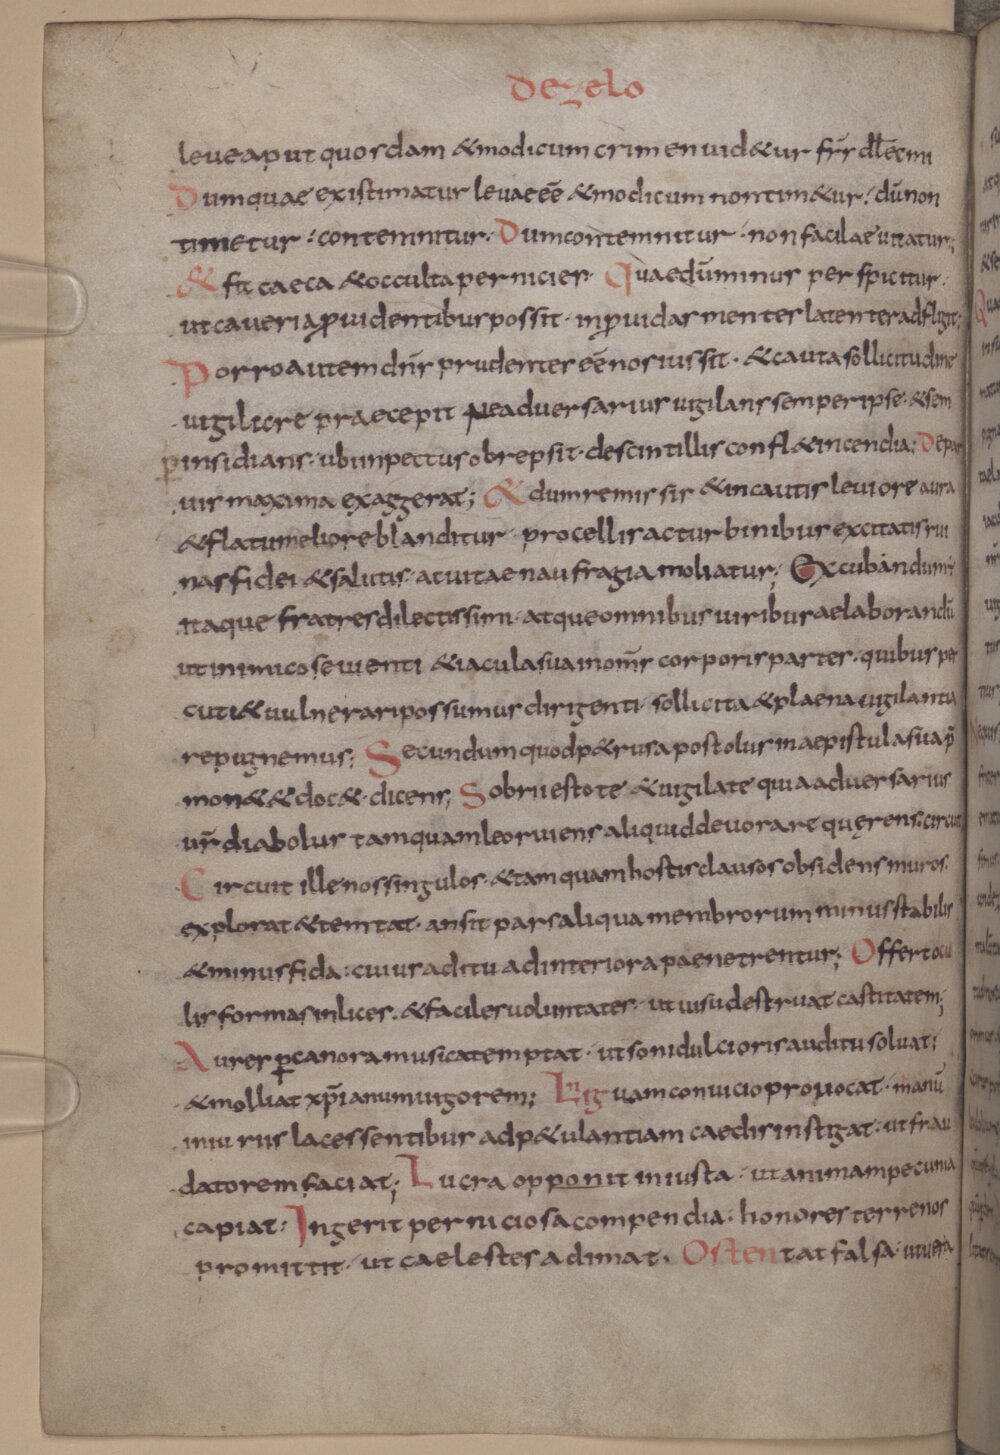 De zelo
leue aput quosdam & modicum crimen uid&ur frs dlecmi
Dumquae existimatur leuae eē & modicum non tim&ur; dū non
timetur; contemnitur. Dum contemnitur. non facilae uitatur;
& fit caeca & occulta pernicies. Quae dū minus perspicitur.
ut caueri a puidentibus possit. inpuidas mentes latenter adfligit;
Porro autem dns prudentes eē nos iussit. & cauta sollicitudine
uigiliore praecepit Ne aduersarius uigilans semper ipse. & sem
p insidians. ubi in pectus obrepsit. de scintillis confl& incendia; De par
uis maxima exaggerat; & dum remissis & incautis leuiore aura
& flatu meliore blanditur. procellis ac turbinibus excitatis rui
nas fidei & salutis. ac uitae naufragia moliatur; Excubandum ē
itaque fratres dilectissimi. atque omnibus uiribus aelaborandū
ut inimico seuienti & iacula sua in oms corporis partes. quibus per
cuti & uulnerari possumus dirigenti. sollicita & plaena uigilantia
repugnemus; Secundum quod p&rus apostolus in aepistula sua p
mon& & doc&. dicens; Sobrii estote & uigilate quia aduersarius
ur diabolus tamquam leo ruiens aliquid deuorare querens. circuit
Circuit ille nos singulos. & tamquam hostis clausos obsidens muros.
explorat & temtat. an sit pars aliqua membrorum minus stabilis
& minus fida. cuius aditu ad interiora paenetrentur; Offert ocu
lis formas inlices. & faciles uoluntates. ut uisu destruat castitatem;
Aures p canora musica temptat. ut soni dulcioris auditu soluat;
& molliat xpianum uigorem; Liguam conuicio prouocat. manū
iniuriis lacessentibus ad p&ulantiam caedis instigat. ut frau
datorem faciat; Lucra opponit iniusta. ut animam pecunia
capiat; Ingerit perniciosa compendia. honores terrenos
promittit. ut caelestes adimat. Ostentat falsa. ut uera